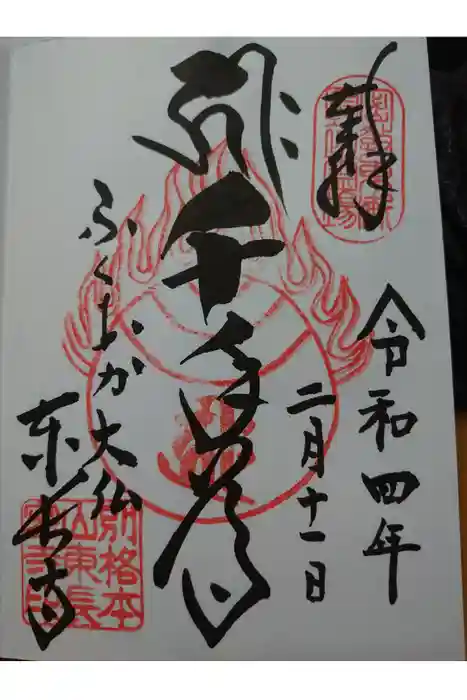 奉拝
令和四年
二月十一日
千手尊
ふくおか大仏
東長寺
別格本
山東長